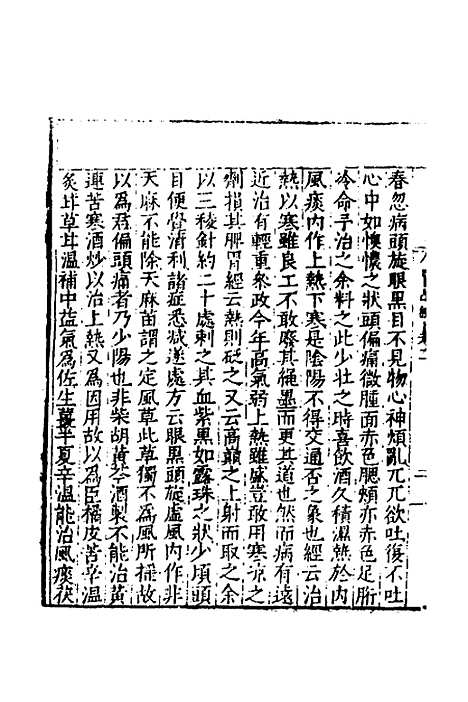 春忽病頭旋眼黑目不見物心神煩亂兀兀欲吐復不吐
心中如懊憹之狀頭偏痛微腫面赤色腮頰亦赤色足胻
冷命予治之余料之此少壯之時喜飲酒久積濕熱於内
風痰内作上熱下寒是陰陽不得交通否之象也經云治
熱以寒雖良工不敢廢其繩墨而更其道也然而病有遠
近治有輕重衆政今年高氣弱上熱雖盛豈敢用寒凉之
劑損其脾胃經云熱則砭之又云高巔之上射而取之余
以三稜針約二十處刺之其血紫黑如露珠之狀少頃頭
目便覺清利諸症悉减遂處方云眼黑頭旋虛風内作非
天麻不能除天麻苗謂之定風草此草獨不為風所摇故
以為君偏頭痛者乃少陽也非柴胡黄芩酒製不能治黄
連苦寒酒炒以治上熱又為因用故以為臣橘皮苦辛温
炙甘草甘温補中益氣為佐生薑半夏辛温能治風痰茯